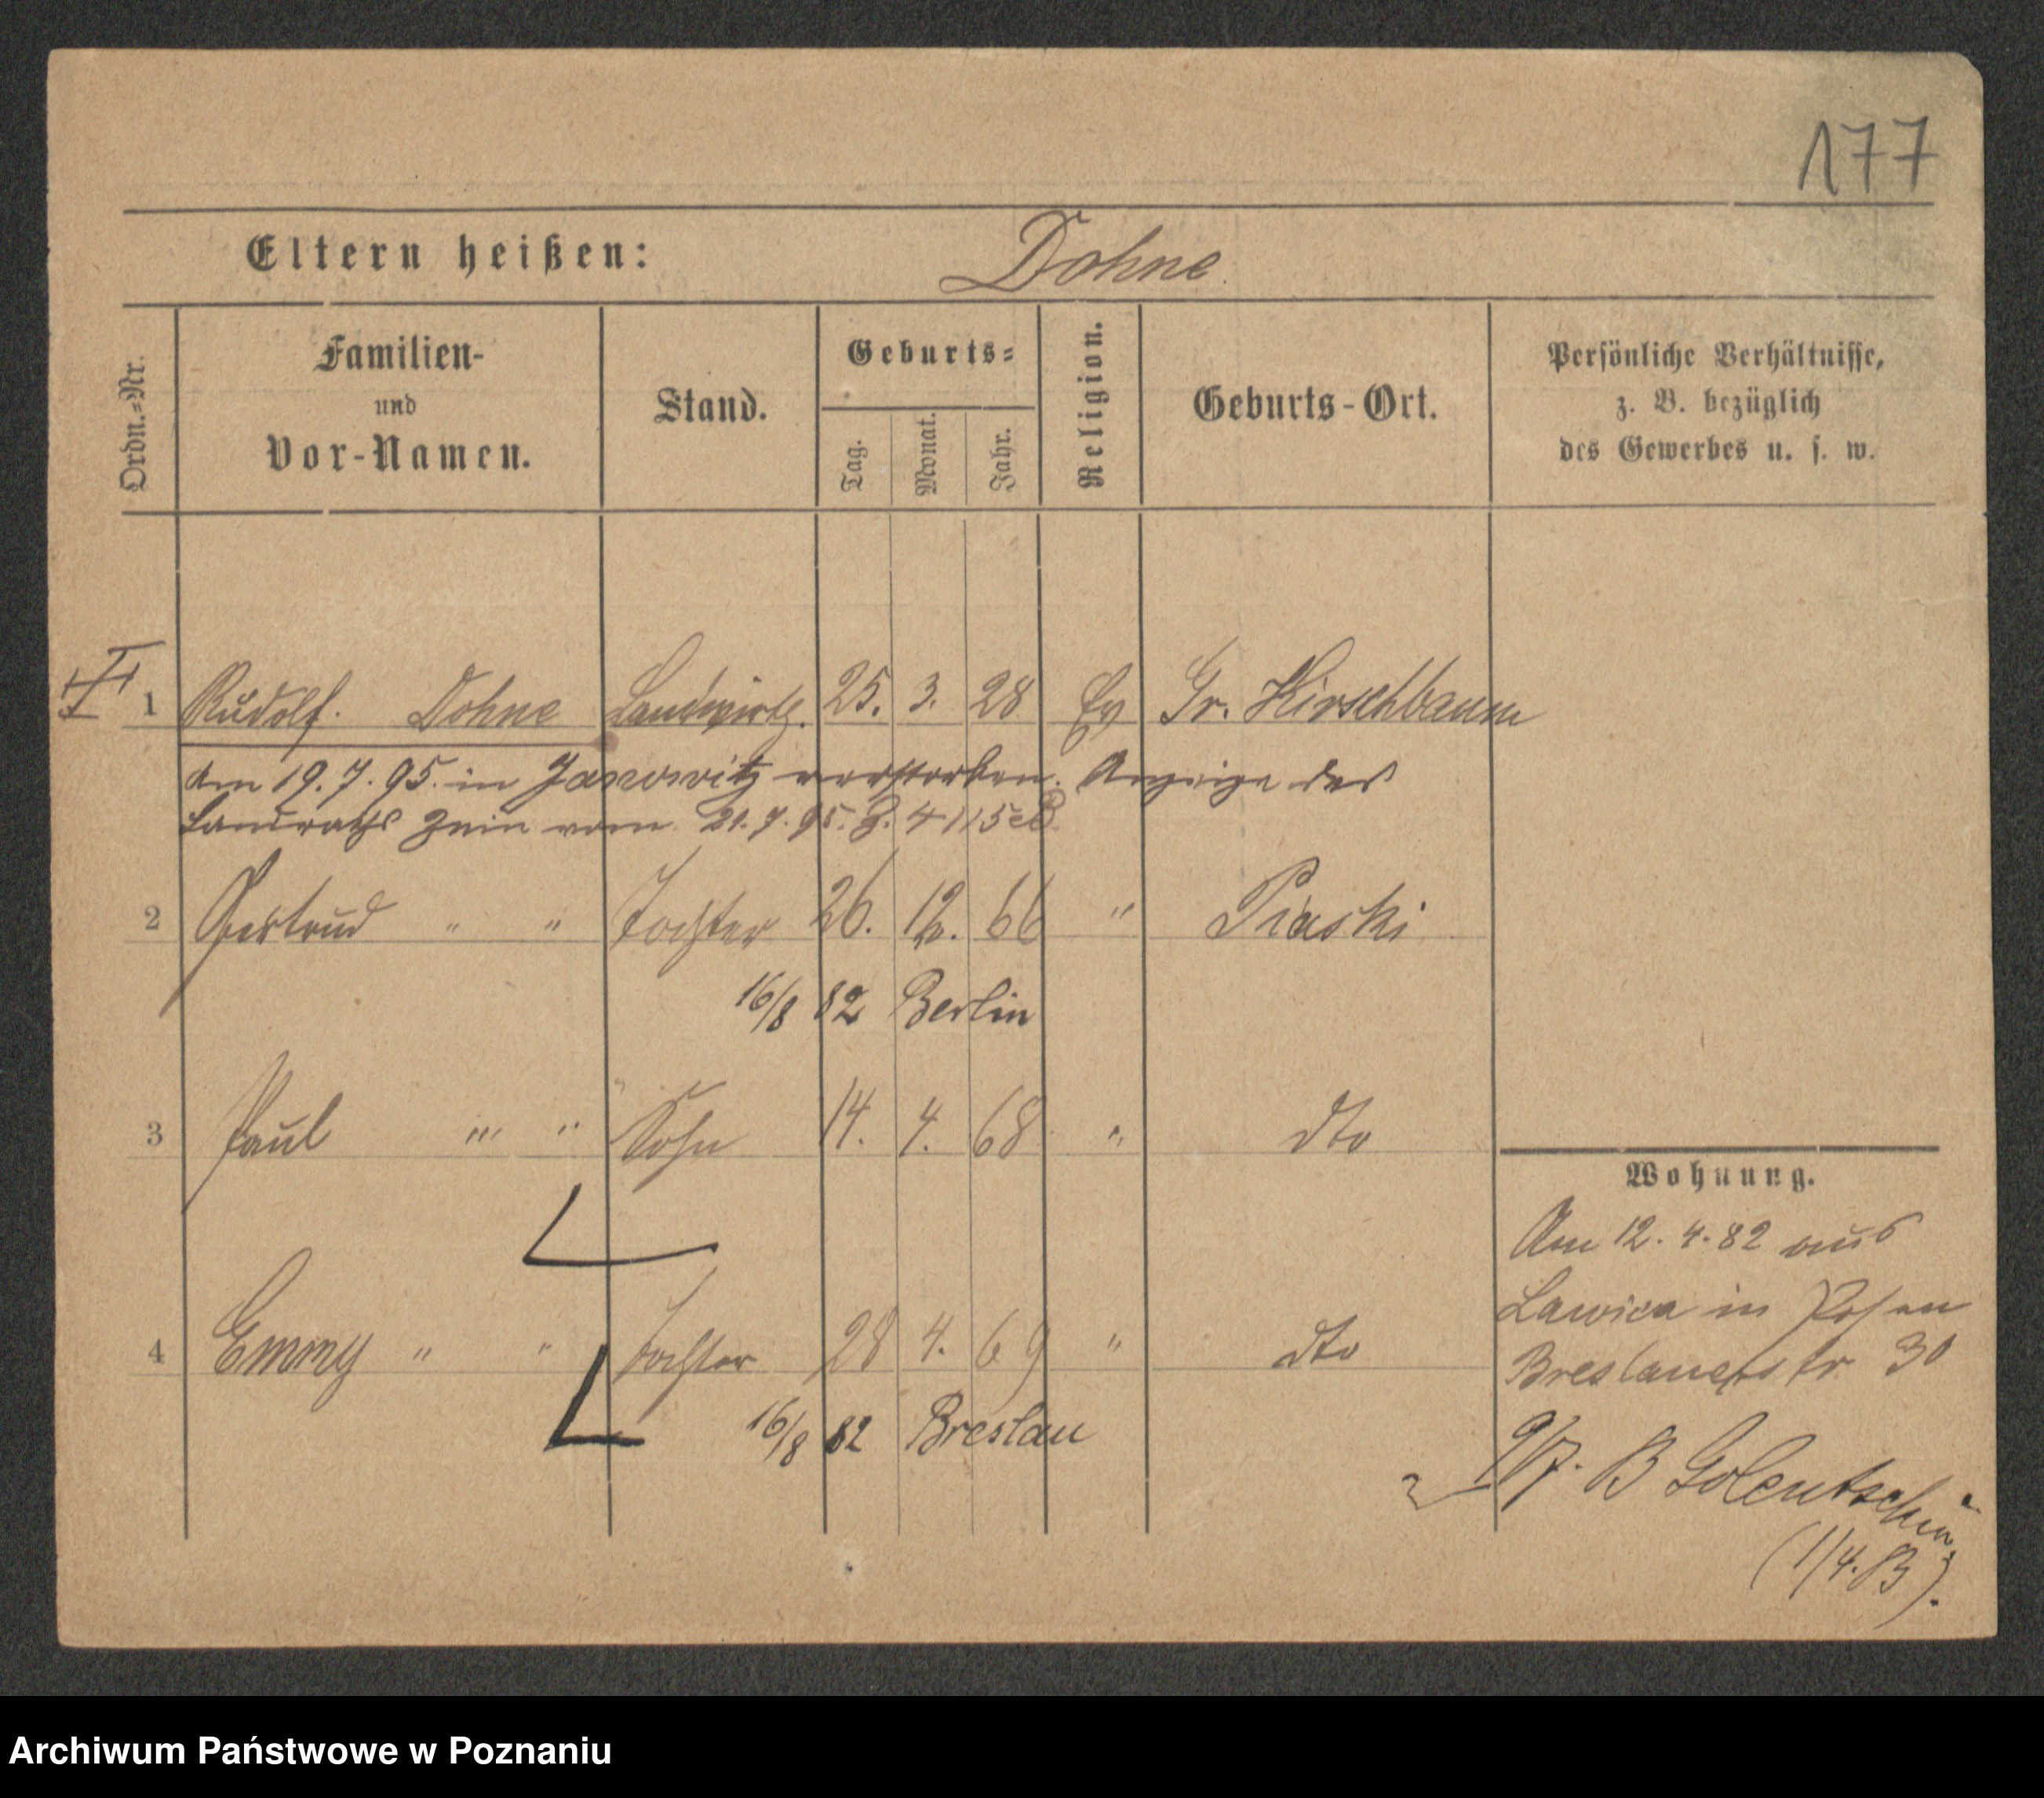 177
Eltern heißen: Dohne
Ordn.-Nr. Familien- und Vor-Namen. Stand. Geburts- Tag. Monat. Jahr. Religion. Geburts-Ort. Persönliche Verhältnisse, z. B. bezüglich des Gewerbes u. s. w.
1 Rudolf. Dohne Landwirth. 25. 3. 28 Ev Gr. Kirschbaum
Am 19. 7. 95. in Janowitz verstorben. Anzeige des
Landraths Znin vom 21. 7. 95.
2 Gertrud " " Tochter 26. 12. 66 " Piaski
16/8 82 Berlin
3 Paul " " Sohn 14. 4. 68 " dto
4 Emmy " " Tochter 28 4. 69 " dto
16/8 82 Breslau
Wohnung.
Am 12. 4. 82 aus
Lawica in Posen
Breslauerstr 30
9/7. B Golentschin
(1/4. B).
Archiwum Państwowe w Poznaniu